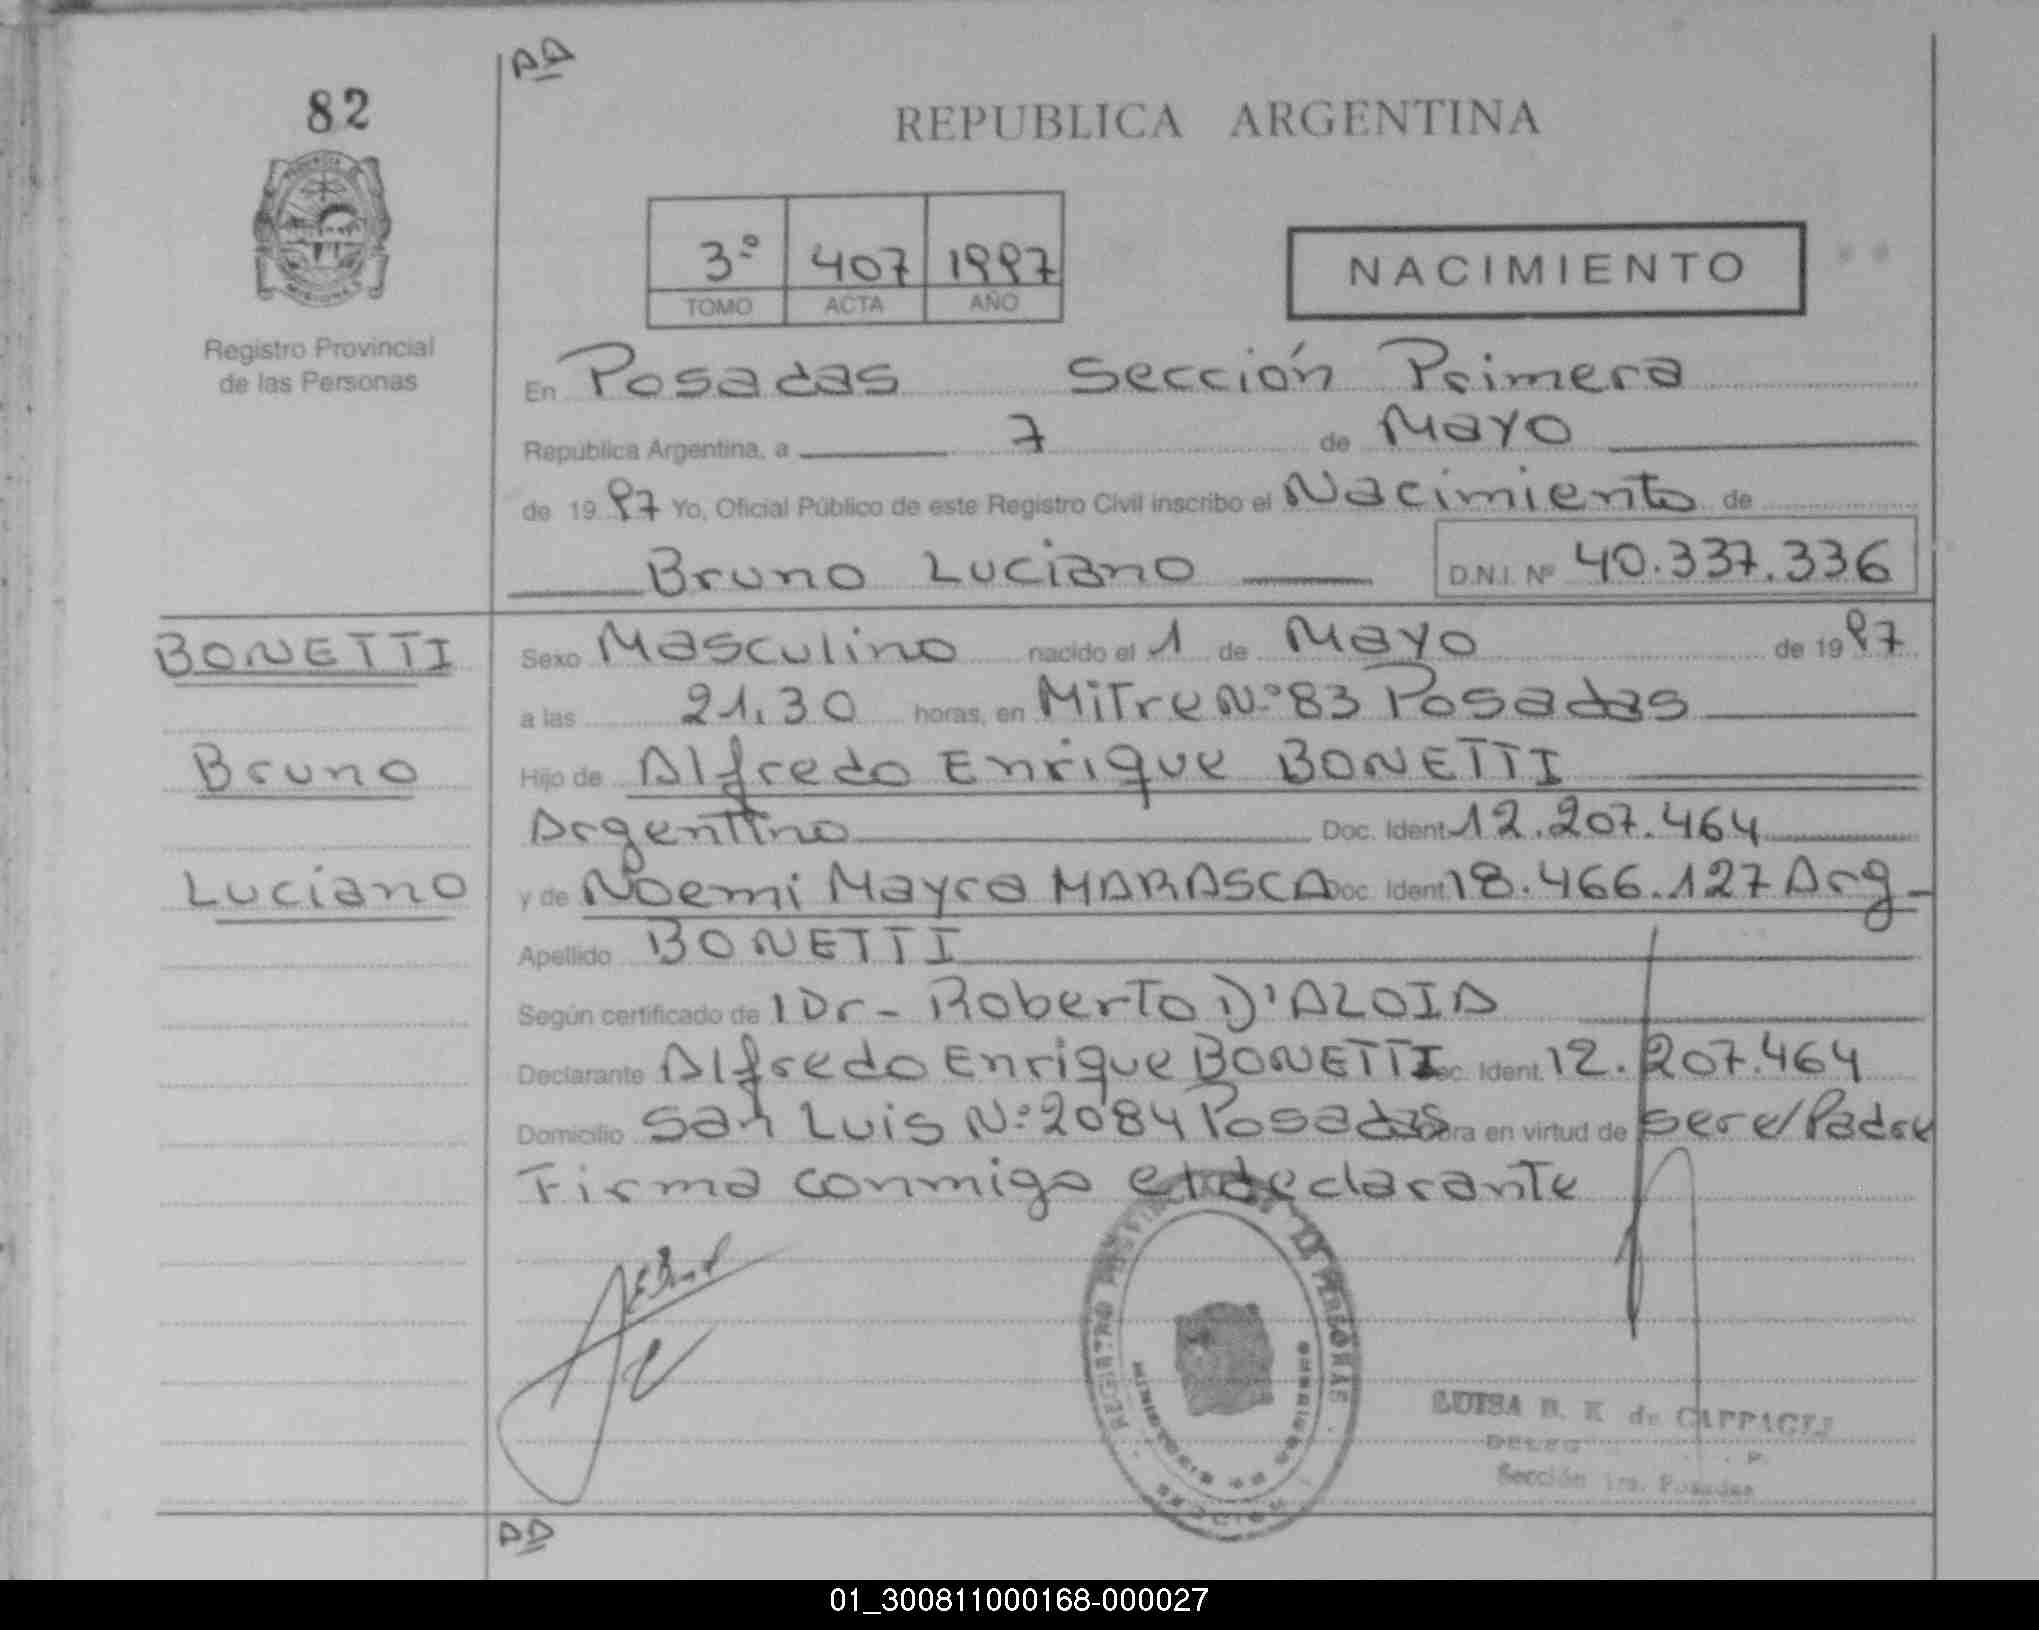 AA
82
REPUBLICA ARGENTINA
3º 407 1997
TOMO ACTA AÑO
NACIMIENTO
Registro Provincial
de las Personas
En Posadas Sección Primera
República Argentina, a 7 de Mayo
de 1997 Yo, Oficial Público de este Registro Civil inscribo el Nacimiento de
Bruno Luciano D.N.I. Nº 40.337.336
BONETTI
Bruno
Luciano
Sexo Masculino nacido el 1 de Mayo de 1997
a las 21.30 horas, en Mitre Nº 83 Posadas
Hijo de Alfredo Enrique BONETTI
Argentino Doc. Ident. 12.207.464
y de Noemi Mayra MARASCA Doc. Ident. 18.466.127 Arg-
Apellido BONETTI
Según certificado de 1 Dr- Roberto D'ALOIA
Declarante Alfredo Enrique BONETTI Doc. Ident. 12.207.464
Domicilio San Luis Nº 2084 Posadas obra en virtud de ser el Padre
Firma conmigo el declarante
REGISTRO PROVINCIAL DE LAS PERSONAS
MISIONES
LUISA B. K de
Sección 1ra. Posadas
AA
01_300811000168-000027